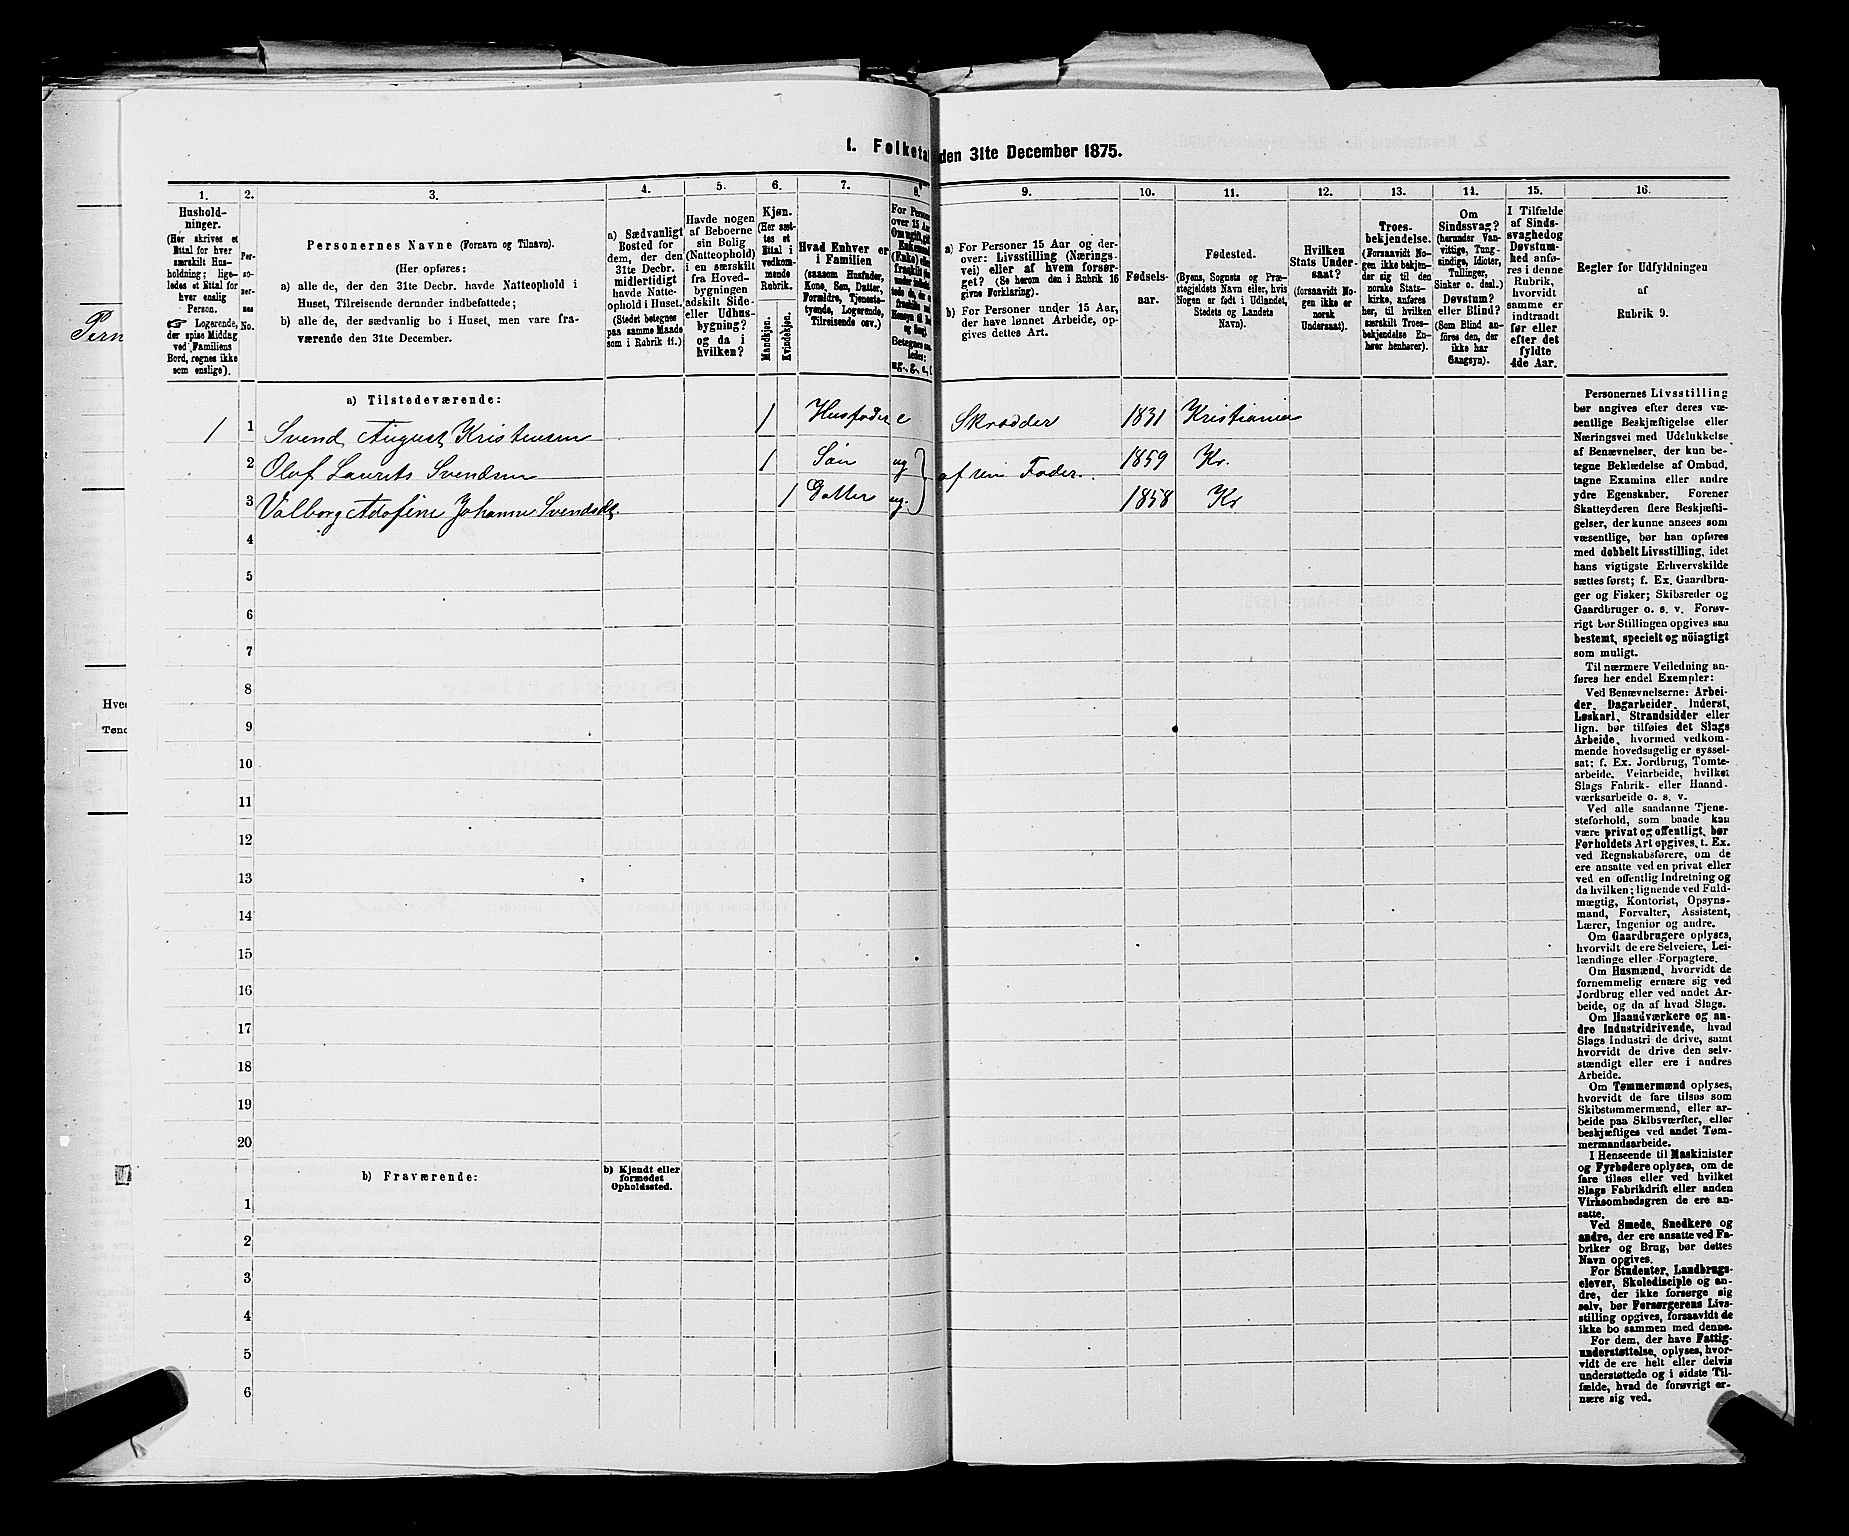 Pern
Hved
Tønd
1. Folketal den 31te December 1875.
1. 2. 3. 4. 5. 6. 7. 8. 9. 10. 11. 12. 13. 14. 15. 16.
Hushold-
ninger.
(Her skrives et
Ettal for hver
særskilt Hus-
holdning; lige-
ledes et Ettal for
hver enslig
Person.
☞ Logerende,
der spise Middag
ved Familiens
Bord, regnes ikke
som enslige).
Per-
so-
ner-
nes
No.
Personernes Navne (Fornavn og Tilnavn).
(Her opføres:
a) alle de, der den 31te Decbr. havde Natteophold i
Huset, Tilreisende derunder indbefattede;
b) alle de, der sædvanlig bo i Huset, men vare fra-
værende den 31te December.
a) Sædvanligt
Bosted for
dem, der den
31te Decbr.
midlertidigt
havde Natte-
ophold i Huset.
(Stedet betegnes
paa samme Maade
som i Rubrik 11.)
Havde nogen
af Beboerne
sin Bolig
(Natteophold)
i en særskilt
fra Hoved-
bygningen
adskilt Side-
eller Udhus-
bygning?
og da i
hvilken?
Kjøn.
(Her sæt-
tes et
Ettal i
vedkom-
mende
Rubrik.
Mandkjøn.
Kvindekjøn.
Hvad Enhver er
i Familien
(saasom Husfader,
Kone, Søn, Datter,
Forældre, Tjeneste-
tyende, Logerende,
Tilreisende osv.)
For Person
over 15 Aar
ug., g., e., f.
a) For Personer 15 Aar og der-
over: Livsstilling (Nærings-
vei) eller af hvem forsør-
get. (Se herom den i Rubrik 16
givne Forklaring).
b) For Personer under 15 Aar,
der have lønnet Arbeide, op-
gives dettes Art.
Fødsels-
aar.
Fødested.
(Byens, Sognets og Præ-
stegjeldets Navn eller, hvis
Nogen er født i Udlandet,
Stedets og Landets
Navn).
Hvilken
Stats Under-
saat?
(forsaavidt No-
gen ikke er
norsk
Undersaat).
Troes-
bekjendelse.
(Forsaavidt No-
gen ikke bekjen-
der sig til den
norske Stats-
kirke, anføres
her, til hvilken
særskilt Troes-
bekjendelse En-
hver henhører).
Om
Sindssvag?
(herunder Van-
vittige, Tung-
sindige, Idioter,
Tullinger,
Sinker o. desl.)
Døvstum?
eller Blind?
(Som Blind an-
føres den, der
ikke har
Gangsyn).
I Tilfælde
af Sinds-
svaghed og
Døvstum-
hed anfø-
res i denne
Rubrik,
hvorvidt
samme er
indtraadt
før eller
efter det
fyldte
4de Aar.
Regler for Udfyldningen
af
Rubrik 9.
a) Tilstedeværende:
1 1 Svend August Kristensen 1 Husfader e Skrædder 1831 Kristiania
2 Olaf Laurits Svendsen 1 Søn ug af sin Fader. 1859 Kr.
3 Valborg Adofine Johanne Svendsdt. 1 Datter ug. 1858 Kr
4
5
6
7
8
9
10
11
12
13
14
15
16
17
18
19
20
b) Fraværende:
b) Kjendt eller
formodet
Opholdssted.
1
2
3
4
5
6
Personernes Livsstilling
bør angives efter deres væ-
sentlige Beskjæftigelse eller
Næringsvei med Udelukkelse
af Benævnelser, der kun be-
tegne Beklædelse af Ombud,
tagne Examina eller andre
ydre Egenskaber. Forener
Skatteyderen flere Beskjæfti-
gelser, der kunne ansees som
væsentlige, bør han opføres
med dobbelt Livsstilling, idet
hans vigtigste Erhvervskilde
sættes først; f. Ex. Gaardbru-
ger og Fisker; Skibsreder og
Gaardbruger o. s. v. Forøv-
rigt bør Stillingen opgives saa
bestemt, specielt og nöiagtigt
som muligt.
Til nærmere Veiledning an-
føres her endel Exempler:
Ved Benævnelserne: Arbei-
der, Dagarbeider, Inderst,
Løskarl, Strandsidder eller
lign. bør tilføies det Slags
Arbeide, hvormed vedkom-
mende hovedsagelig er syssel-
sat; f. Ex. Jordbrug, Tomte-
arbeide, Veiarbeide, hvilket
Slags Fabrik- eller Haand-
værksarbeide o. s. v.
Ved alle saadanne Tjene-
steforhold, som baade kan
være privat og offentligt, bør
Forholdets Art opgives, t. Ex.
ved Regnskabsførere, om de
ere ansatte ved en privat eller
ved en offentlig Indretning og
da hvilken; lignende ved Fuld-
mægtig, Kontorist, Opsyns-
mand, Forvalter, Assistent,
Lærer, Ingeniør og andre.
Om Gaardbrugere oplyses,
hvorvidt de ere Selveiere, Lei-
lændinge eller Forpagtere.
Om Husmænd, hvorvidt de
fornemmelig ernære sig ved
Jordbrug eller ved andet Ar-
beide, og da af hvad Slags.
Om Haandværkere og an-
dre Industridrivende, hvad
Slags Industri de drive, samt
hvorvidt de drive den selv-
stændigt eller ere i andres
Arbeide.
Om Tømmermænd oplyses,
hvorvidt de fare tilsøs som
Skibstømmermænd, eller ar-
beide paa Skibsværfter, eller
beskjæftiges ved andet Tøm-
mermandsarbeide.
I Henseende til Maskinister
og Fyrbødere oplyses, om de
fare tilsøs eller ved hvilket
Slags Fabrikdrift eller anden
Virksomhedsgren de ere an-
satte.
Ved Smede, Snedkere og
andre, der ere ansatte ved Fa-
briker og Brug, bør dettes
Navn opgives.
For Studenter, Landbrugs-
elever, Skoledisciple og an-
dre, der ikke forsørge sig
selv, bør Forsørgerens Livs-
stilling opgives, forsaavidt de
ikke bo sammen med denne.
For dem, der have Fattig-
understøttelse, oplyses, hvor-
vidt de ere helt eller delvis
understøttede og i sidste Til-
fælde, hvad de forøvrigt er-
nære sig ved.